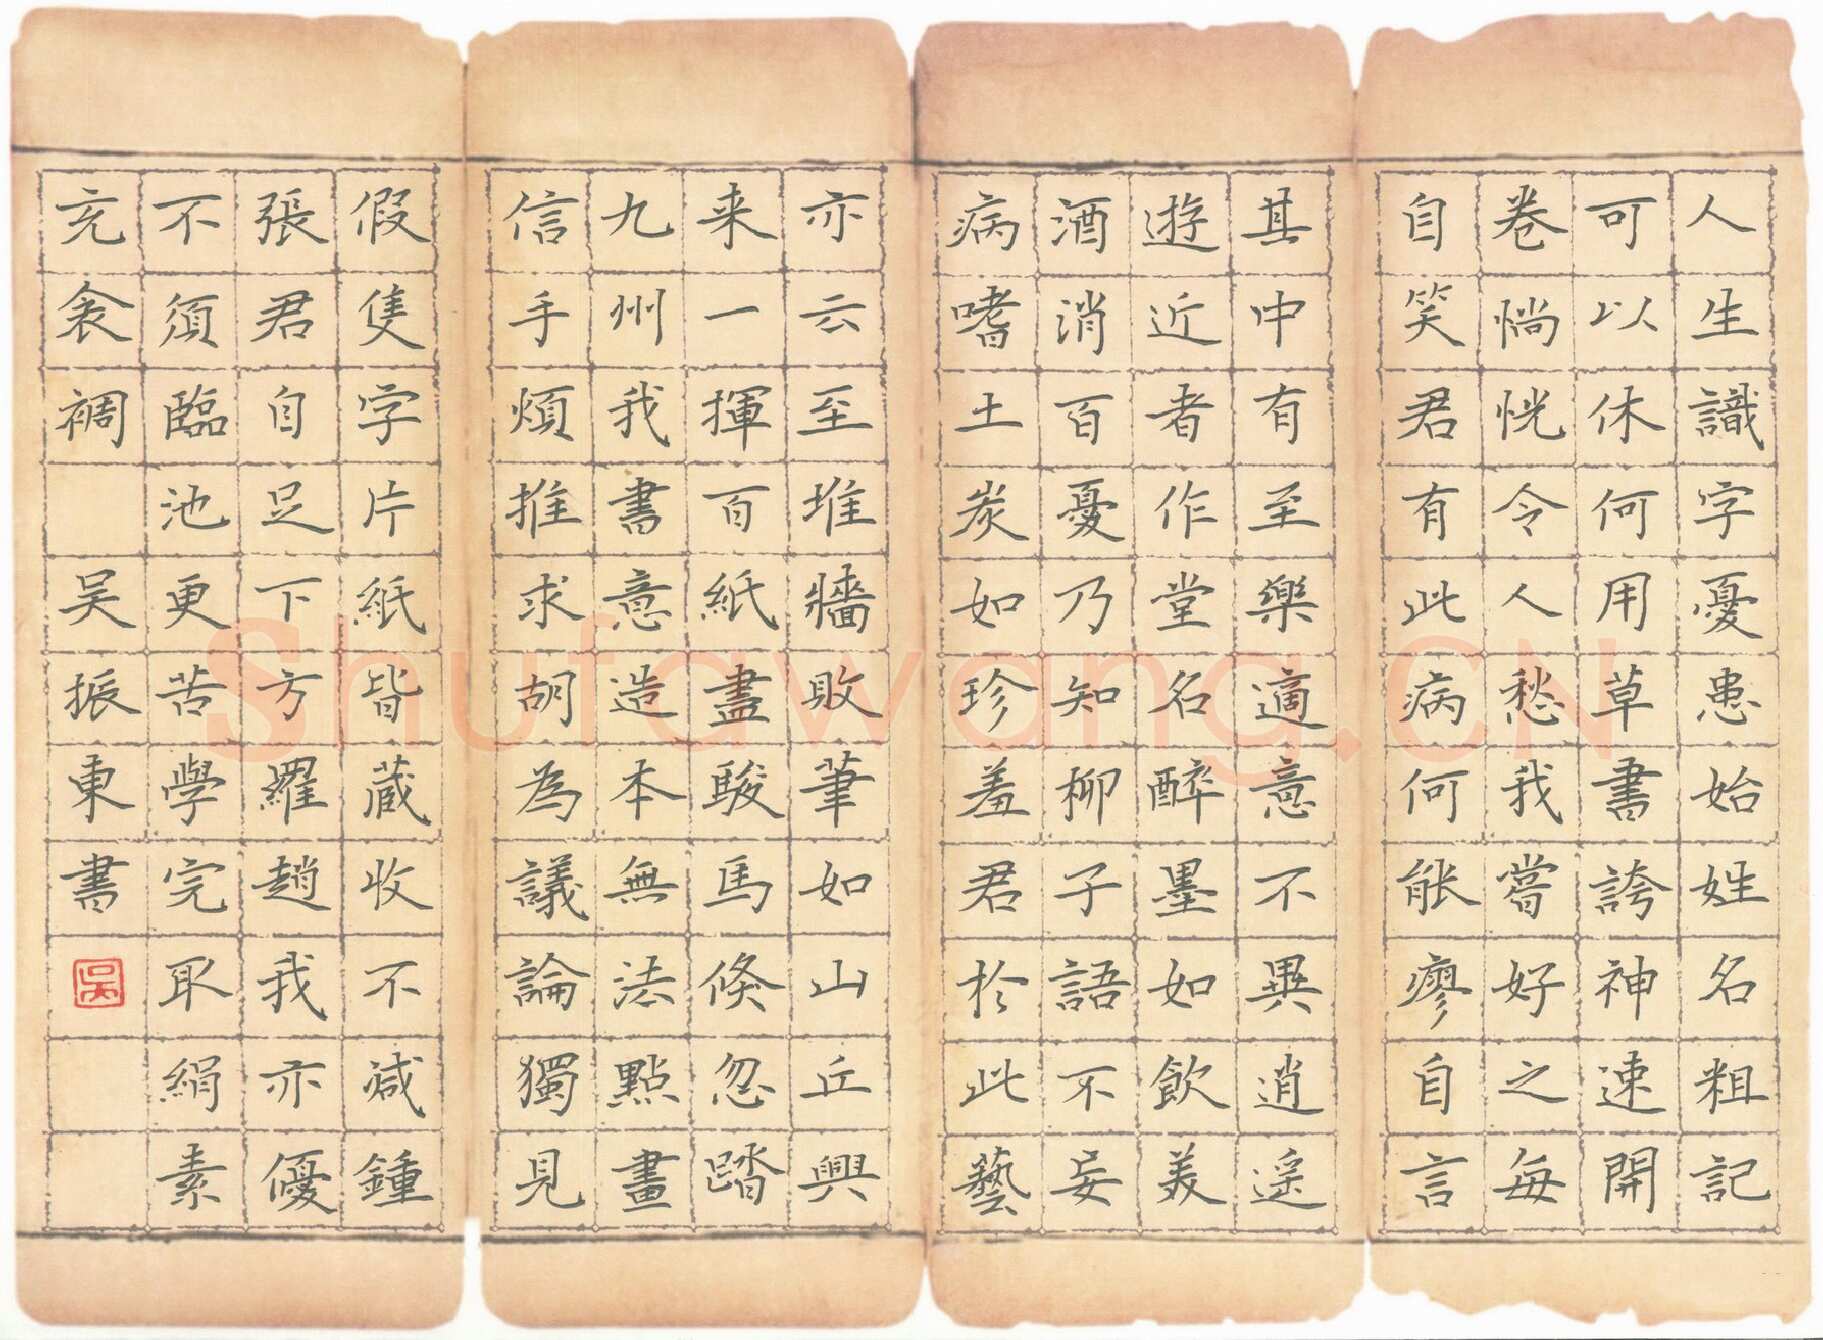 人生識字憂患始姓名粗記
可以休何用草書誇神速開
卷惝恍令人愁我嘗好之每
自笑君有此病何能廖自言
其中有至樂適意不異逍遥
遊近者作堂名醉墨如飲美
酒消百憂乃知柳子語不妄
病嗜土炭如珍羞君於此藝
亦云至堆牆敗筆如山丘興
来一揮百紙盡駿馬倏忽踏
九州我書意造本無法點畫
信手煩推求胡為議論獨見
假隻字片紙皆藏收不減鍾
張君自足下方羅趙我亦優
不須臨池更苦學完取絹素
充衾裯 吴振東書
吳
Shufawang.CN